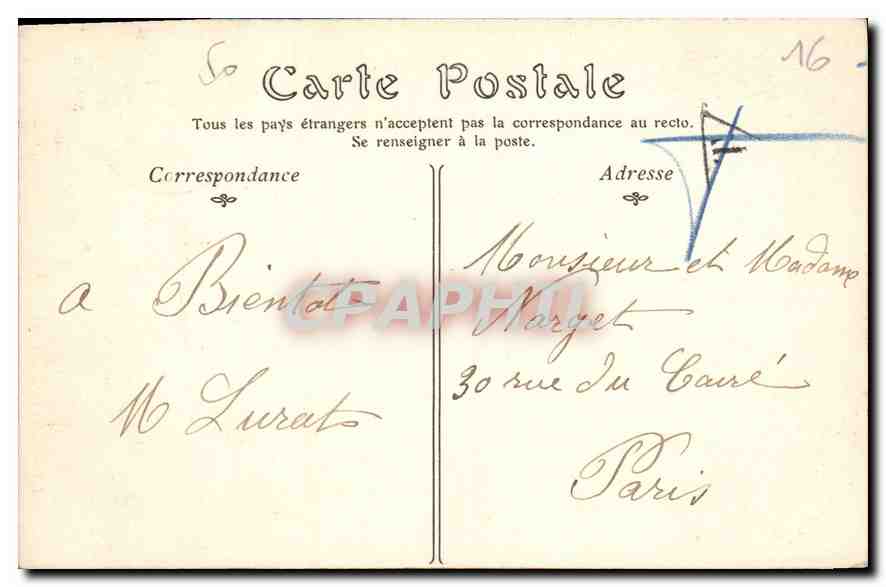 50
16
Carte Postale
Tous les pays étrangers n'acceptent pas la correspondance au recto.
Se renseigner à la poste.
Correspondance
Adresse
a Bientot
M Lurat
Monsieur et Madame
Narget
30 rue du Cairé
Paris
CPAPHIL